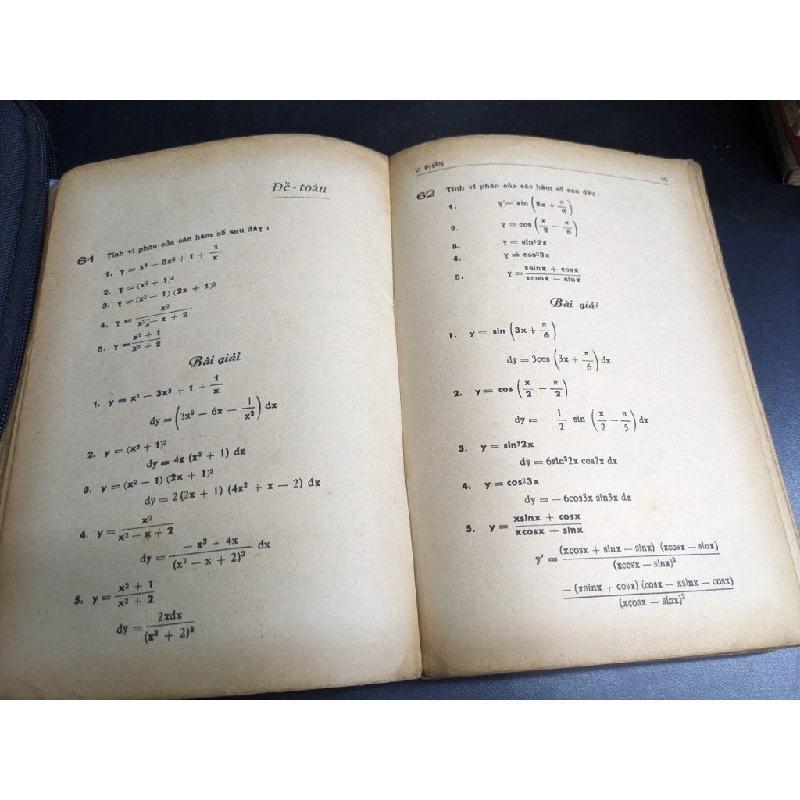 Đề-toán
61 Tính vi phân của các hàm số sau đây :
1. y = x³ − 3x² + 1 + 1/x
2. y = (x² + 1)²
3. y = (x² − 1) (2x + 1)²
4. y = x²/(x² − x + 2)
5. y = (x² + 1)/(x² + 2)
Bài giải
1. y = x³ − 3x² + 1 + 1/x
dy = (3x² − 6x − 1/x²) dx
2. y = (x² + 1)²
dy = 4x (x² + 1) dx
3. y = (x² − 1) (2x + 1)²
dy = 2 (2x + 1) (4x² + x − 2) dx
4. y = x²/(x² − x + 2)
dy = (− x² + 4x)/(x² − x + 2)² dx
5. y = (x² + 1)/(x² + 2)
dy = 2xdx/(x² + 2)²
VI PHÂN
62 Tính vi phân của các hàm số sau đây :
1. y = sin (3x + π/6)
2. y = cos (x/2 − π/5)
3. y = sin³2x
4. y = cos²3x
5. y = (xsinx + cosx)/(xcosx − sinx)
Bài giải
1. y = sin (3x + π/6)
dy = 3cos (3x + π/6) dx
2. y = cos (x/2 − π/2)
dy = − 1/2 sin (x/2 − π/5) dx
3. y = sin³2x
dy = 6sin²2x cos2x dx
4. y = cos²3x
dy = − 6cos3x sin3x dx
5. y = (xsinx + cosx)/(xcosx − sinx)
y' = (xcosx + sinx − sinx) (xcosx − sinx)/(xcosx − sinx)²
− (xsinx + cosx) (cosx − xsinx − cosx)/(xcosx − sinx)²